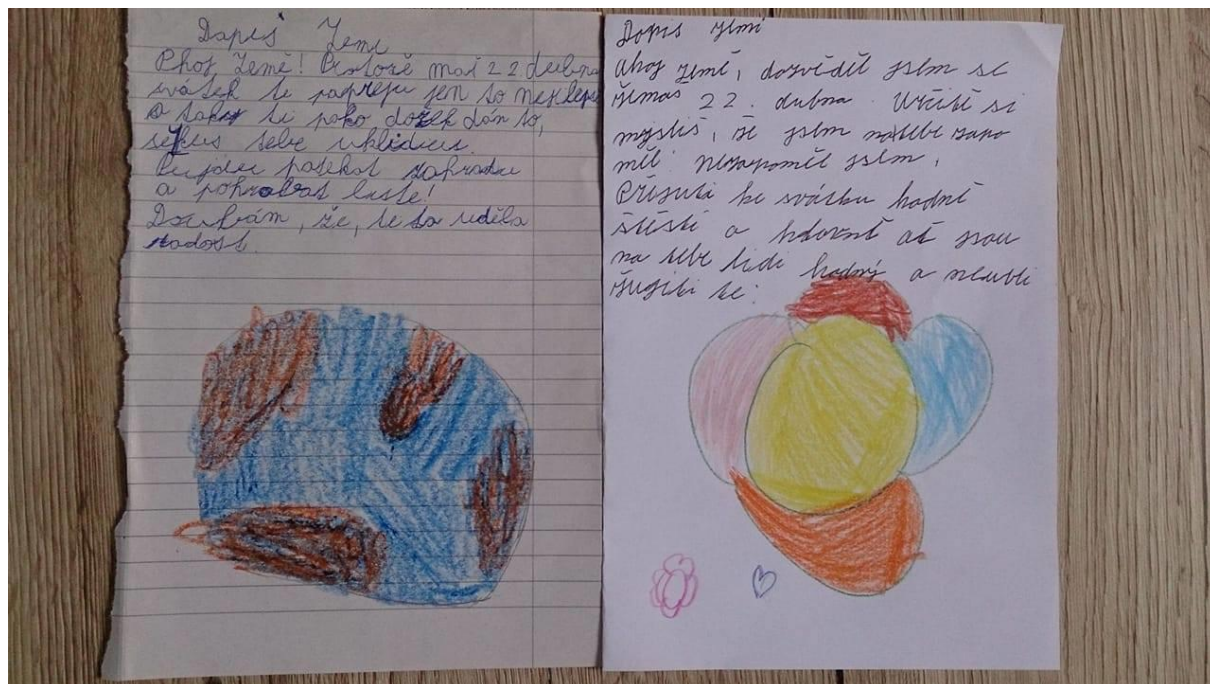 Dopis Zemi
Ahoj Země! Protože máš 22 dubna
svátek te popřeju jen to nejlepš
a taky ti jako dárek dám to,
že kus tebe uklidím.
Pujdu posekat zahradu
a pohrabat listí!
Doufám, že, te to udělá
radost.
Dopis Zemi
Ahoj země, dozvěděl jsem se
že máš 22. dubna. Určitě si
myslíš, že jsem na tebe zapo
měl. Nezapoměl jsem.
Přeju ti ke svátku hodně
štěstí a hlavně ať jsou
na tebe lidi hodný a neubli
žujou te.